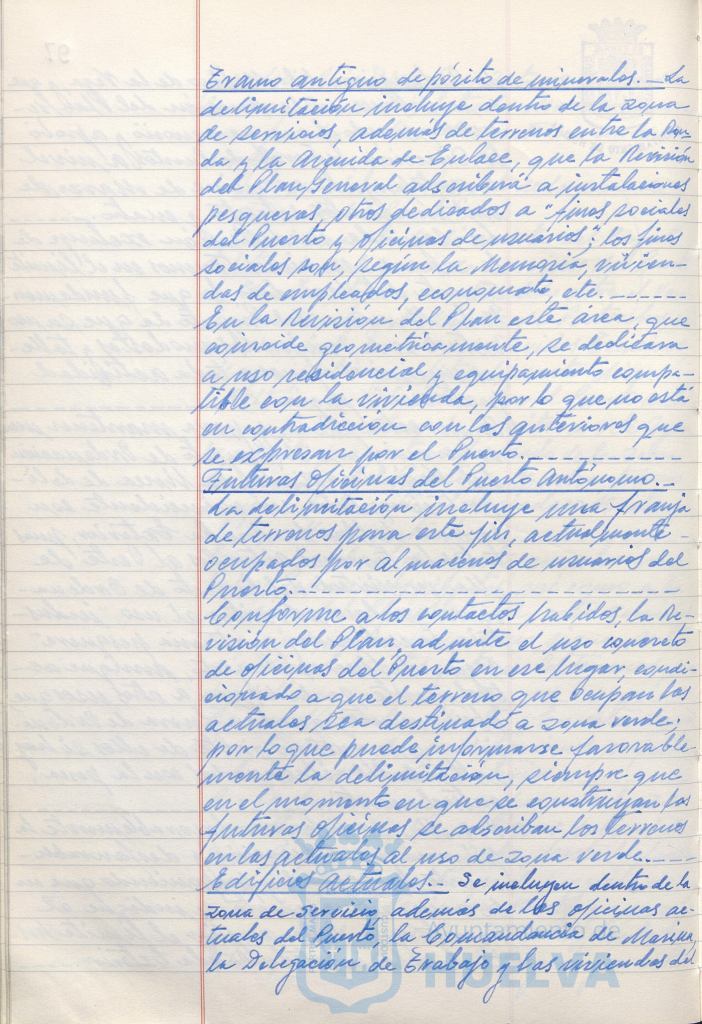 Tramo antiguo depósito de minerales.- La
delimitación incluye dentro de la zona
de servicios, además de terrenos entre la Ron-
da y la Avenida de Enlace, que la Revisión
del Plan General adscribirá a instalaciones
pesqueras, otros dedicados a "fines sociales
del Puerto y oficinas de usuarios"; los fines
sociales son, según la Memoria, vivien-
das de empleados, economato etc.------
En la Revisión del Plan este área, que
coincide geométricamente, se dedicara
a uso residencial y equipamiento compa-
tible con la vivienda, por lo que no está
en contradicción con los anteriores que
se expresan por el Puerto.----------
Futuras Oficinas del Puerto Autónomo.-
La delimitación incluye una franja
de terrenos para este fin, actualmente
ocupados por almacenes de usuarios del
Puerto.----------------------------
Conforme a los contactos habidos, la Re-
visión del Plan, admite el uso concreto
de oficinas del Puerto en ese lugar, condi-
cionado a que el terreno que ocupan las
actuales sea destinado a zona verde;
por lo que puede informarse favorable
mente la delimitación, siempre que
en el momento en que se construyan las
futuras oficinas se adscriban los terrenos
en las actuales al uso de zona verde.----
Edificios actuales.- Se incluyen dentro de la
zona de servicio, además de las oficinas ac-
tuales del Puerto, la Comandancia de Marina,
la Delegación de Trabajo y las viviendas del
Ayuntamiento de
HUELVA
97